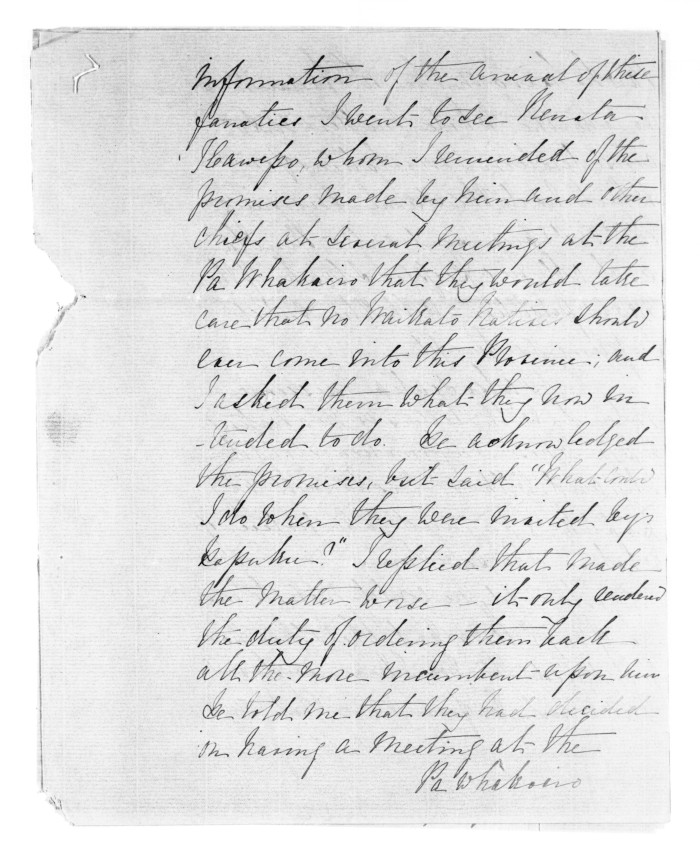 information of the arrival of these
fanatics I went to see Renata
Kawepo, whom I reminded of the
promises made by him and other
chiefs at several meetings at the
Pa Whakairo that they would take
care that no Waikato Natives should
ever come into this Province; and
I asked them what they now in
-tended to do. He acknowledged
the promises, but said "What could
I do when they were invited by
I replied that made
the matter worse – it only rendered
the duty of ordering them back
all the more incumbent upon him
He told me that they had decided
on having a meeting at the
Pa Whakairo